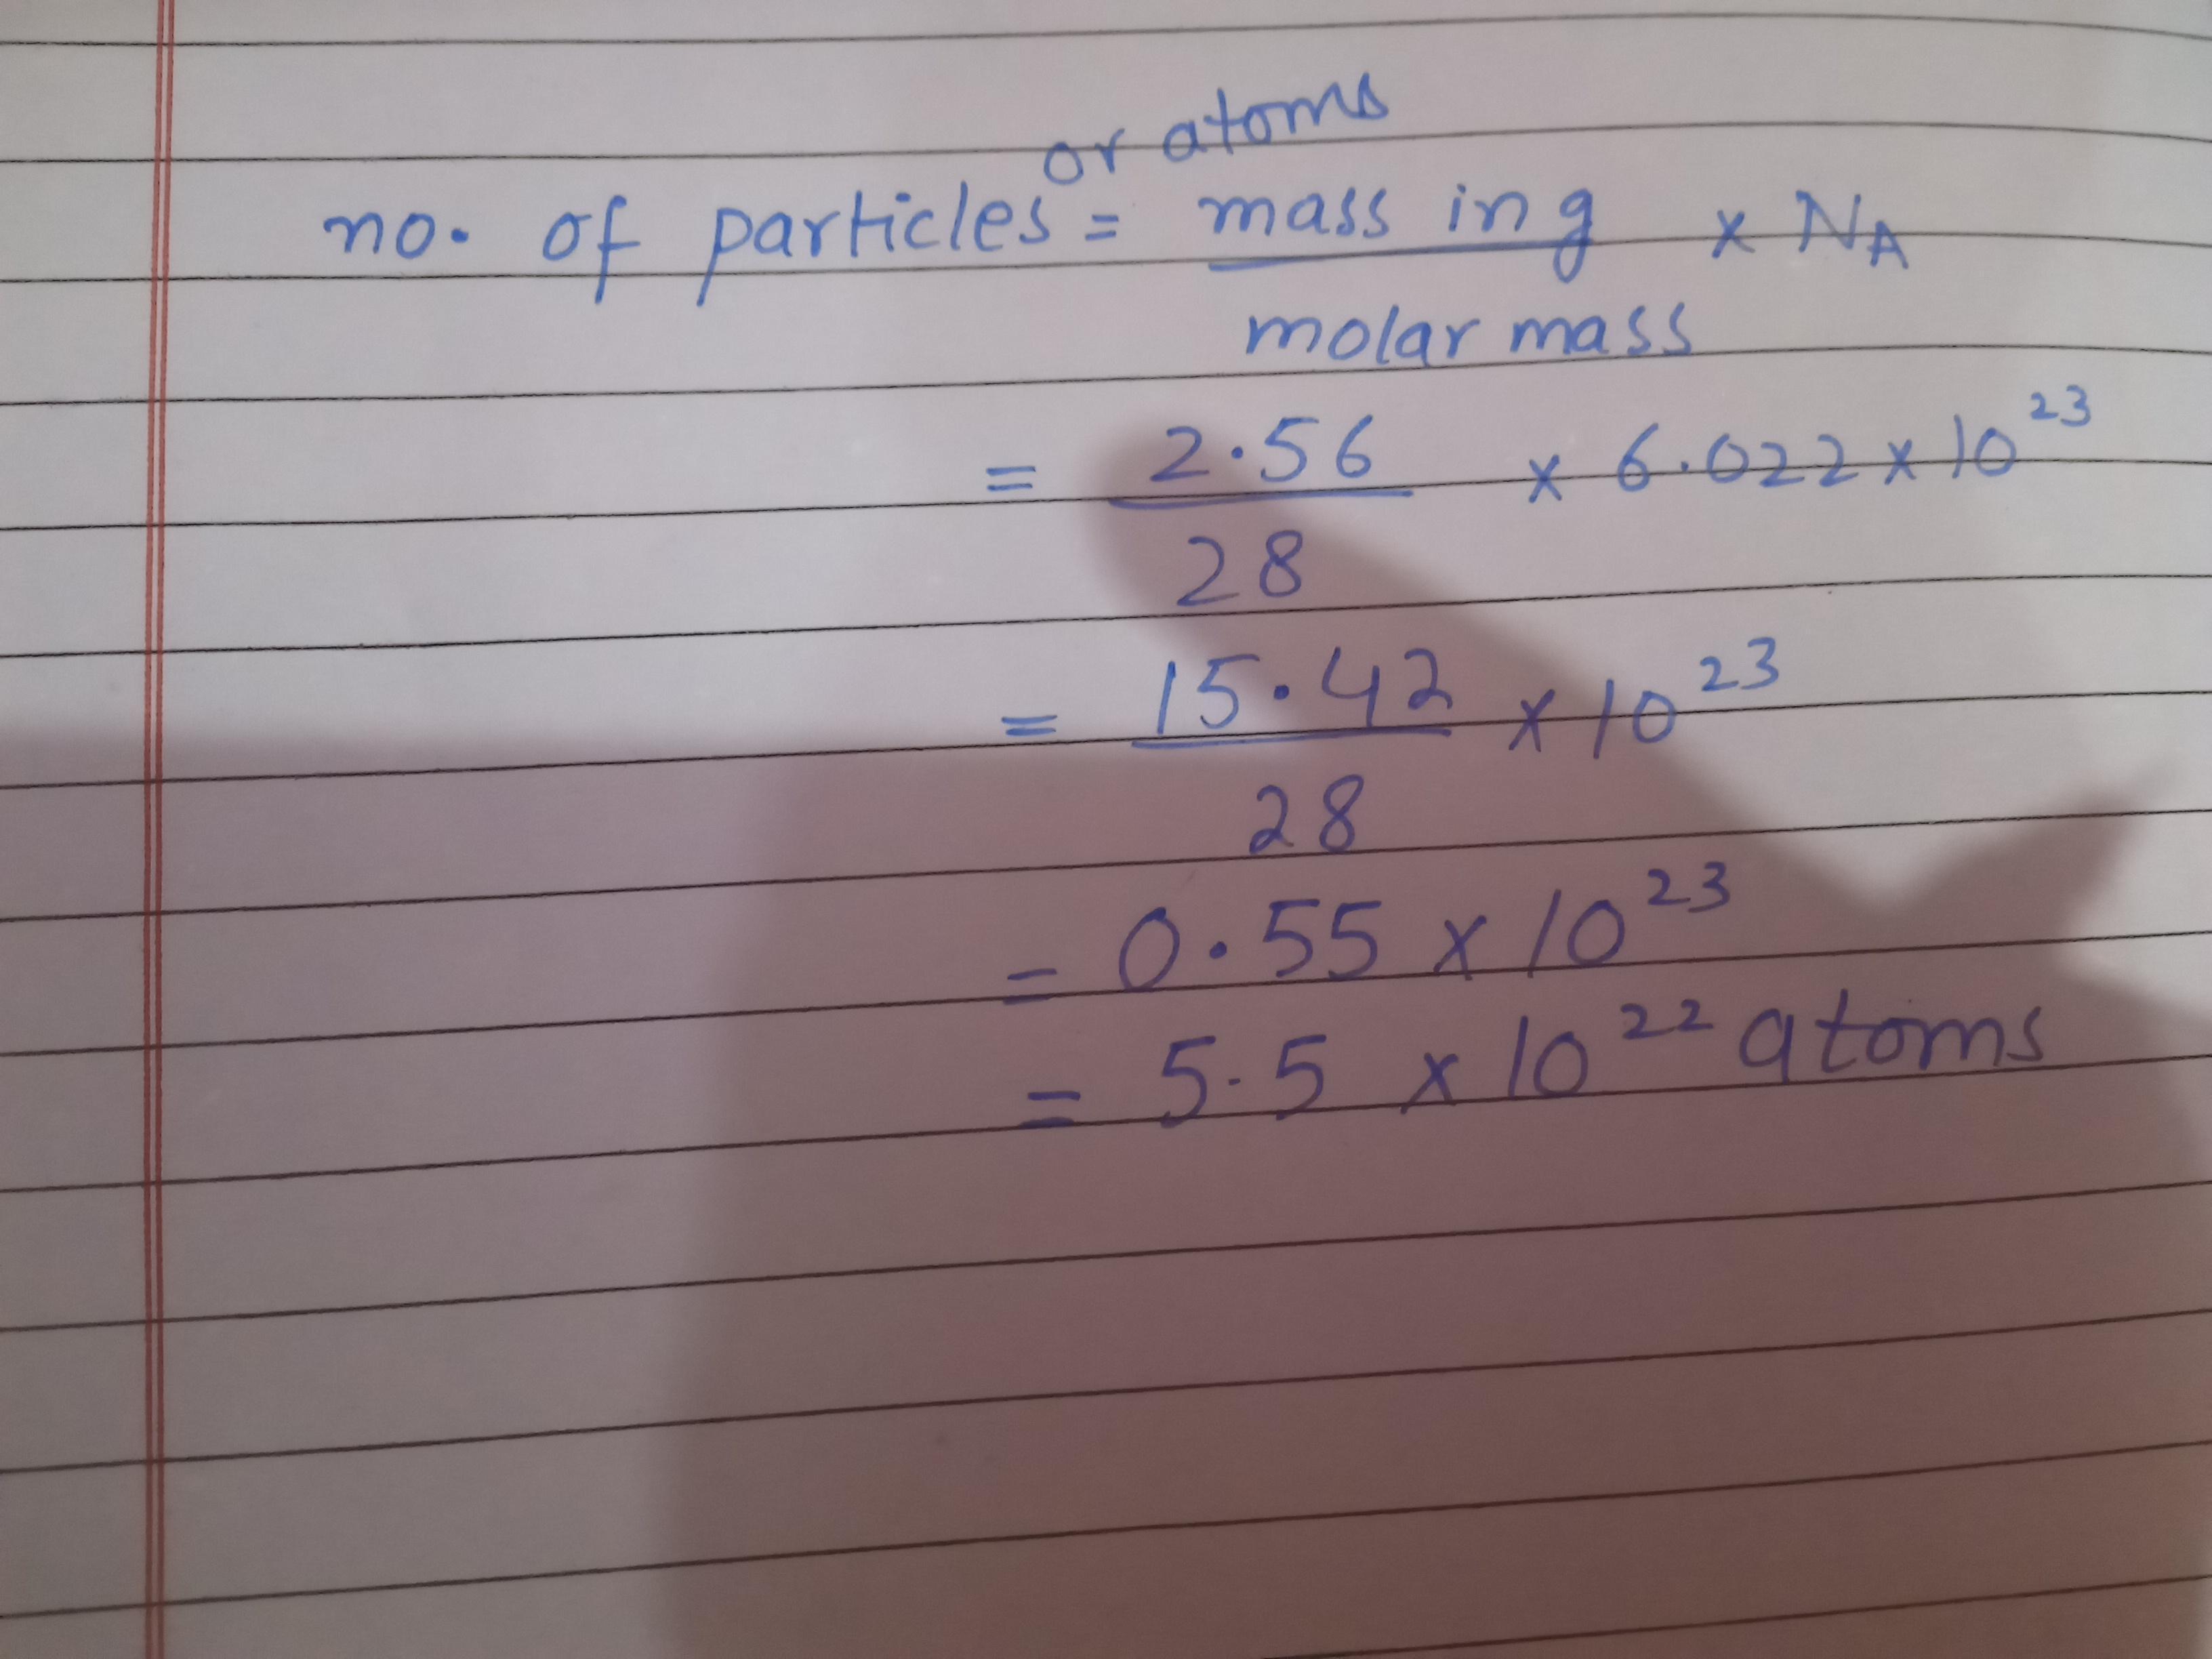 or atoms
no. of particles = mass in g × NA
molar mass
= 2.56 × 6.022 × 10²³
28
= 15.42 × 10²³
28
= 0.55 × 10²³
= 5.5 × 10²² atoms